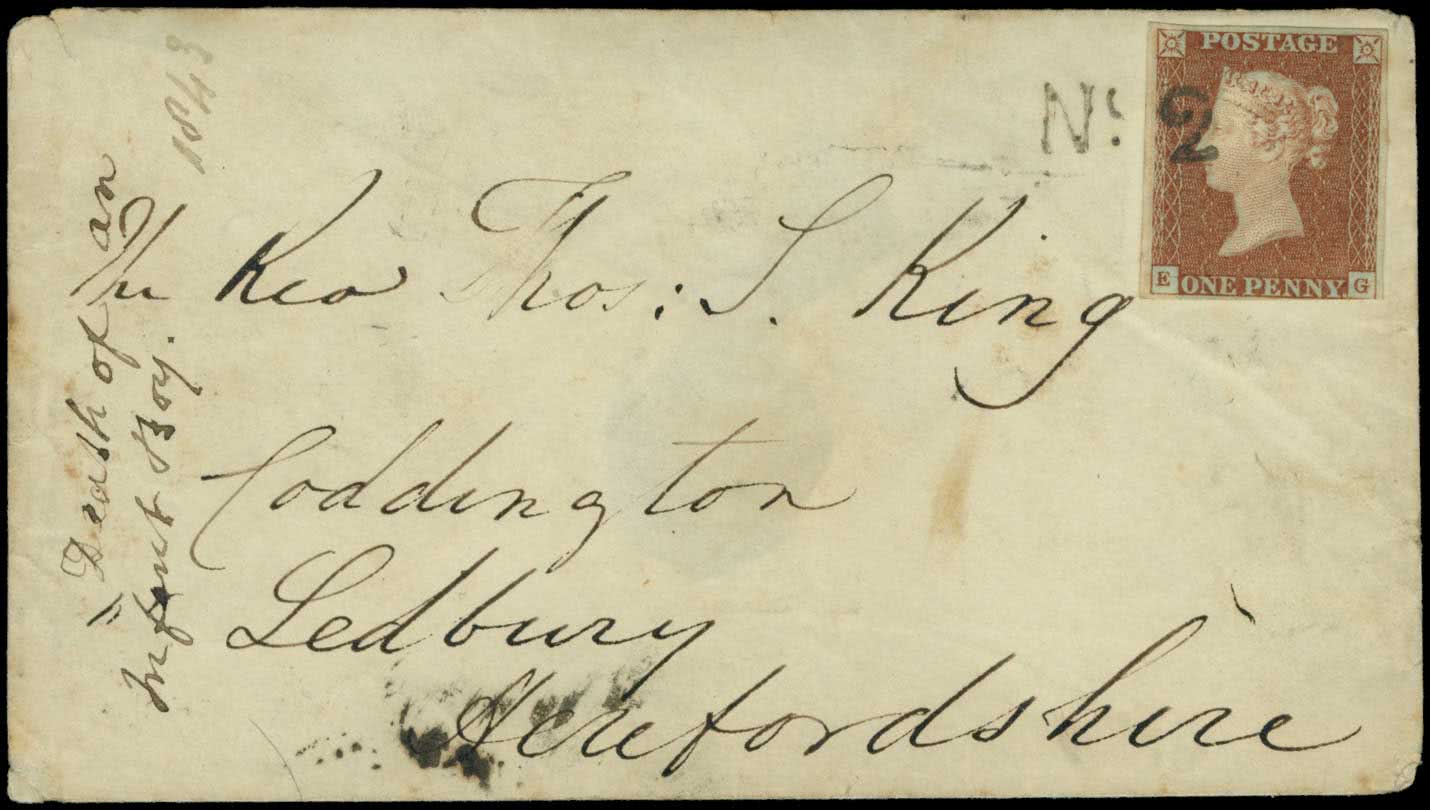 POSTAGE
No: 2
E ONE PENNY. G
The Rev Thos: S. King
Coddington
Ledbury
Herefordshire
"Death of an
Infant Boy.
1843